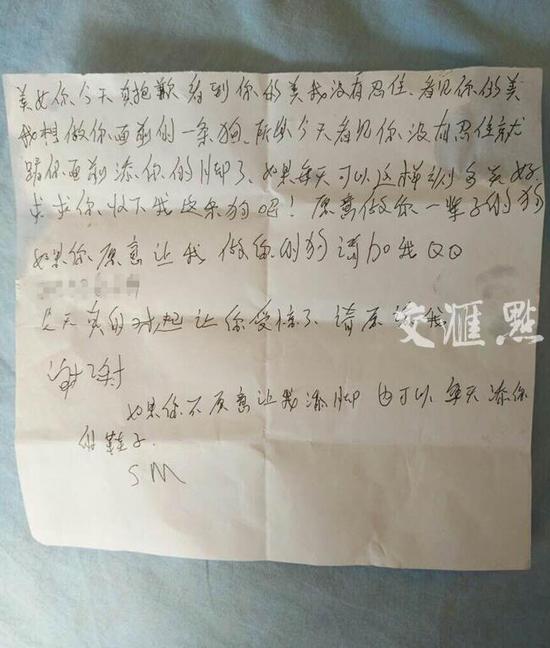 美女你、今天真抱歉看到你的美我没有忍住、看见你的美
我想做你面前的一条狗、所以今天看见你没有忍住就
跪你面前添你的脚了、如果每天可以这样该多美好
求求你、收下我这条狗吧！愿意做你一辈子的狗
如果你愿意让我做你的狗请加我QQ
今天真的对起让你受惊了 请原谅我
交汇點
谢谢
如果你不愿意让我添脚 也可以每天添你
的鞋子.
SM